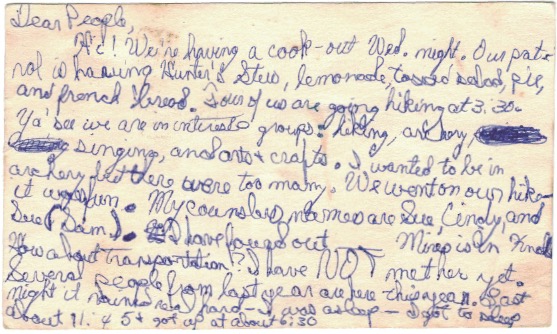 Dear People,
Hi! We're having a cook-out Wed. night. Our pat-
rol is having Hunter's Stew, lemonade, tossed salad, pie,
and french bread. Four of us are going hiking at 3:30.
Ya' see we are in interest groups: hiking, archery,
singing, and arts + crafts. I wanted to be in
archery but there were too many. We went on our hike
it was fun. My counslers names are Sue, Cindy, and
Sue (Sam.). I have found out Mimo is in
How about transportation? I have NOT met her yet.
Several people from last year are here this year. Last
night it rained real hard - I was asleep - I got to sleep
about 11. 4 5 + got up at about 6:30